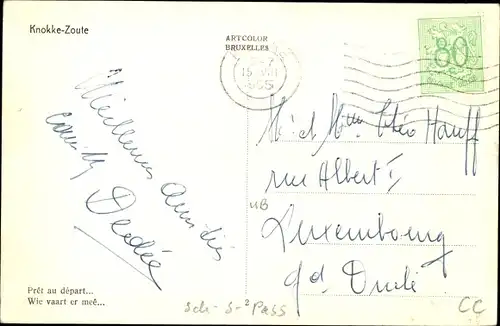 Knokke-Zoute
ARTCOLOR
BRUXELLES
80
Meilleures amitiés
Dédée
M. et Mme Théo Hauff
rue Albert I
Luxembourg
gd. Duché
uB
Prêt au départ...
Wie vaart er meê...
Sch- S-² Pass
CC